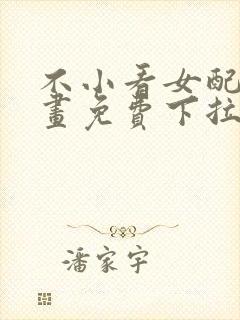 不小看女配
畫免費下拉
潘家宇